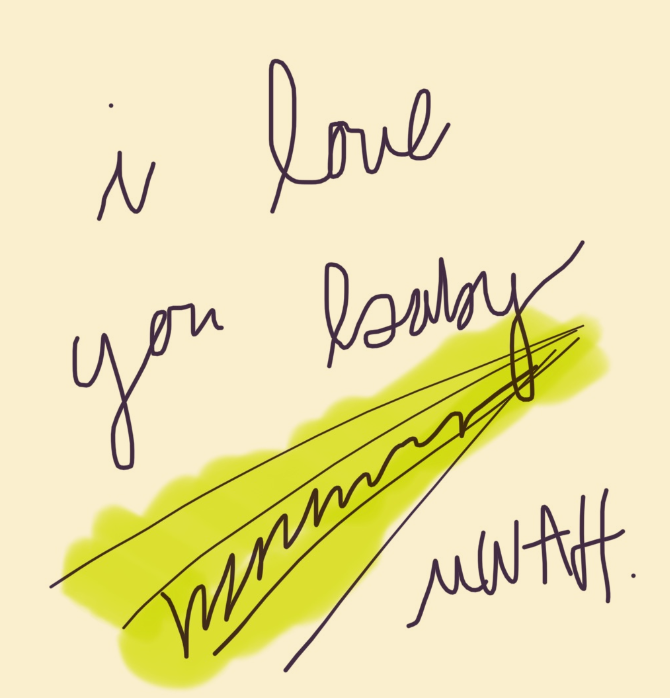 i love
you baby
MWAH.